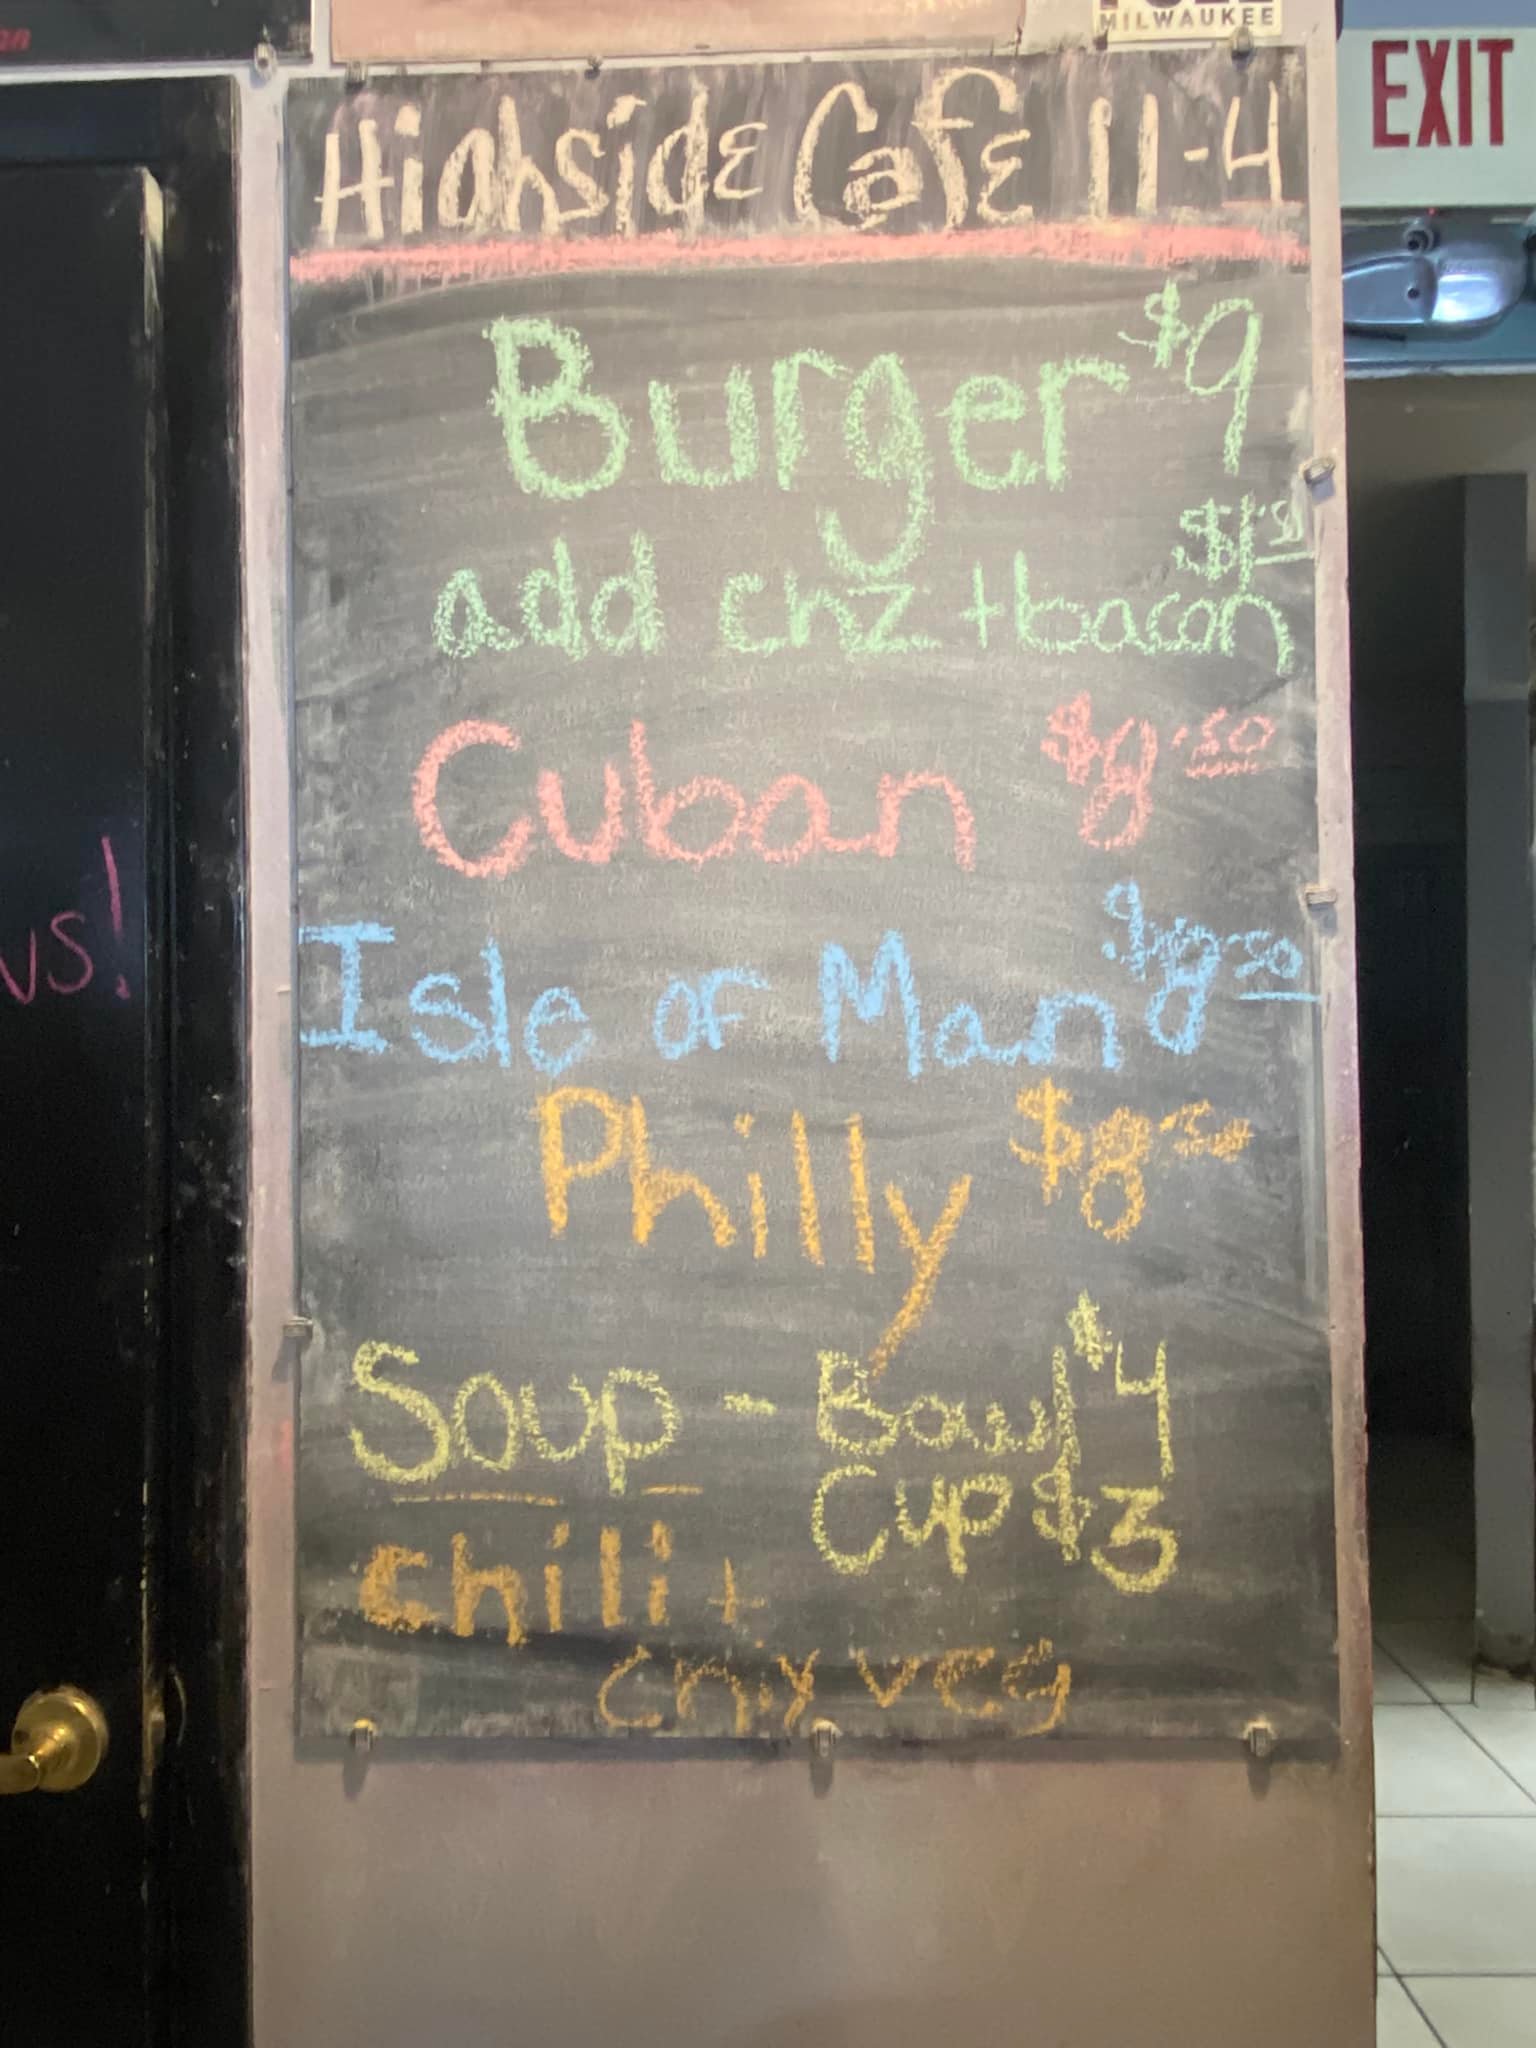 MILWAUKEE
EXIT
Highside Cafe 11-4
Burger $9
add chz + bacon
Cuban $8.50
Isle of Man $8.50
Philly $8.50
Soup - Bowl $4
Cup $3
chili +
veg